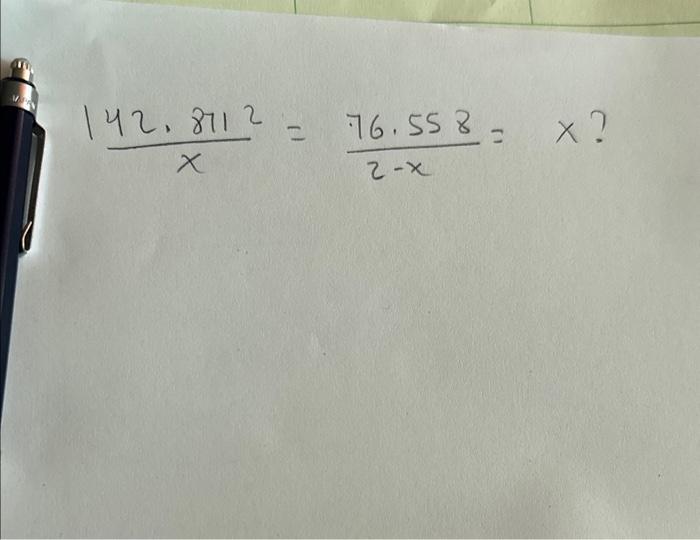 142.8712 / x = 76.558 / 2-x = x?